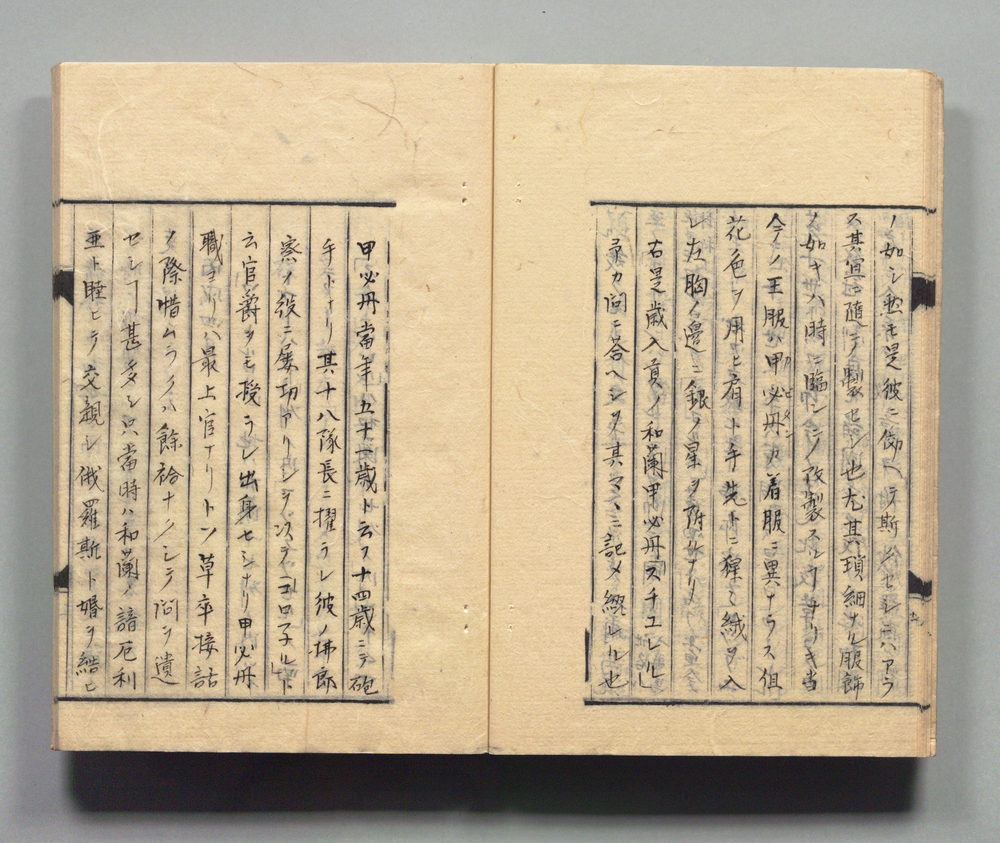 ノ如シ然モ是彼ニ傚ヘテ斯クセシニハアラ
ス其宜ニ随テ製セシ也尤其瑣細ナル服飾
ノ如キハ時ニ臨ンテノ改製スルヿナリキ当
今ノ王服ハ甲必丹カ着服ニ異ナラス但
花色ヲ用ヒ肩ト手先トニ猩々絨ヲ入
レ左胸ノ邊ニ銀ノ星ヲ附ルナリ
右是歳入貢ノ和蘭甲必丹スチユレル
カ問ニ答ヘシヲ其マヽニ記メ綴レル也
甲必丹當年五十一歳ト云フ十四歳ニテ砲
手トナリ其十八隊長ニ擢ラレ彼ノ拂郎
察ノ役ニ屡功アリシヲ以テコロ子ルト
云官爵ヲモ授ラレ出身セシナリ甲必丹
職ヨリハ最上官ナリトソ草卒接話
ノ際惜ムラクハ餘裕ナクシテ問ヲ遺
セシヿ甚多シ只當時ハ和蘭ノ諳厄利
亜ト睦ヒテ交親シ俄羅斯ト婚ヲ結ヒ